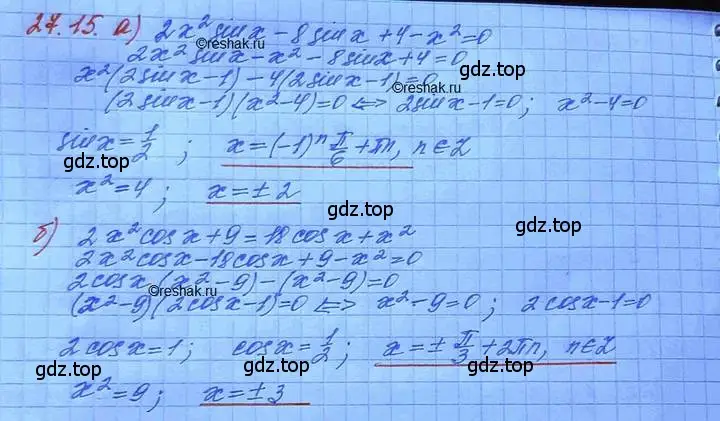 27.15. а) 2x² sin x − 8 sin x + 4 − x² = 0
©reshak.ru
2x² sin x − x² − 8 sin x + 4 = 0
x²(2 sin x − 1) − 4(2 sin x − 1) = 0
(2 sin x − 1)(x² − 4) = 0 <=> 2 sin x − 1 = 0; x² − 4 = 0
sin x = 1/2; x = (−1)ⁿ π/6 + πn, n ∈ Z
x² = 4; x = ± 2
gdz.top
gdz.top
б) 2x² cos x + 9 = 18 cos x + x²
2x² cos x − 18 cos x + 9 − x² = 0
2 cos x (x² − 9) − (x² − 9) = 0
©reshak.ru
(x² − 9)(2 cos x − 1) = 0 <=> x² − 9 = 0; 2 cos x − 1 = 0
gdz.top
2 cos x = 1; cos x = 1/2; x = ± π/3 + 2πn, n ∈ Z
gdz.top
gdz.top
x² = 9; x = ± 3
gdz.top